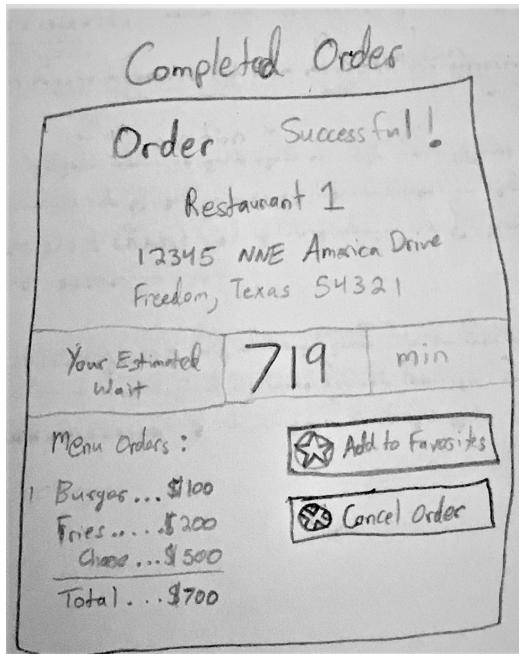 Completed Order
Order Successful!
Restaurant 1
12345 NNE America Drive
Freedom, Texas 54321
Your Estimated Wait
719
min
Menu Orders:
1 Burger...$100
Fries.....$200
Cheese...$500
Total...$700
Add to Favorites
Cancel Order